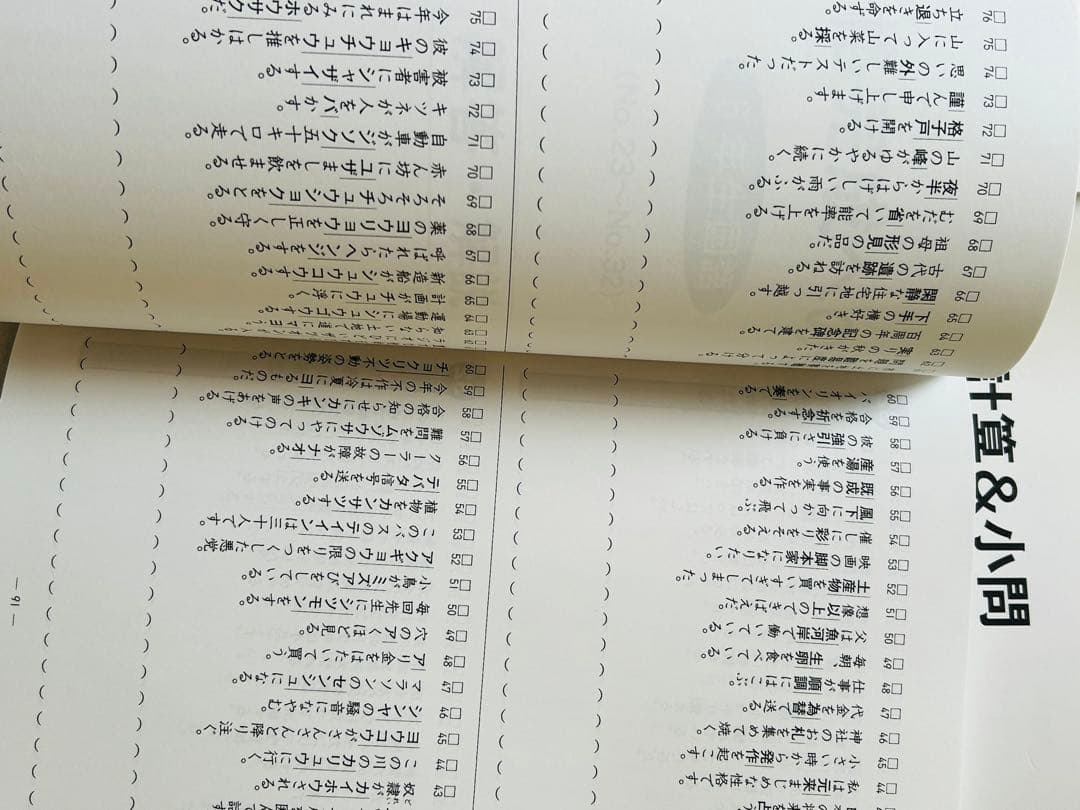 計算＆小問
44 □ 私は元来まじめな性格です。
45 □ 小さい時から発作を起こす。
46 □ 神社のお札を集めて焼く。
47 □ 代金を為替で送る。
48 □ 仕事が順調にはこぶ。
49 □ 毎朝、生卵を食べている。
50 □ 父は魚河岸で働いている。
51 □ 想像以上のできばえだ。
52 □ 土産物を買いすぎてしまった。
53 □ 映画の脚本家になりたい。
54 □ 催しに彩りをそえる。
55 □ 風下に向かって飛ぶ。
56 □ 既成の事実を作る。
57 □ 産湯を使う。
58 □ 彼の強引さに負ける。
59 □ 合格を祈念する。
60 □ バイオリンを奏でる。
43 □ 奴隷がカイホウされる。
44 □ この川のカリュウに行く。
45 □ ヨウコウがさんさんと降り注ぐ。
46 □ シンヤの騒音になやむ。
47 □ マラソンのセンシュになる。
48 □ アリ金をはたいて買う。
49 □ 穴のアくほど見る。
50 □ 毎回先生にシツモンをする。
51 □ 小鳥がミズアびをしている。
52 □ アクギョウの限りをつくした悪党。
53 □ このバスのテイインは三十人です。
54 □ 植物をカンサツする。
55 □ テバタ信号を送る。
56 □ クーラーの故障がナオる。
57 □ 難問をムゾウサにやってのける。
58 □ 合格の知らせにカンキの声をあげる。
59 □ 今年の不作は冷夏にヨるものだ。
60 □ チョクリツ不動の姿勢をとる。
— 91 —
63 □ 実りの秋がきた。
64 □ 百周年の記念碑を建てる。
65 □ 下手の横好き。
66 □ 閑静な住宅地に引っ越す。
67 □ 古代の遺跡を訪れる。
68 □ 祖母の形見の品だ。
69 □ むだを省いて能率を上げる。
70 □ 夜半からはげしい雨がふる。
71 □ 山の峰がゆるやかに続く。
72 □ 格子戸を開ける。
73 □ 謹んで申し上げます。
74 □ 思いの外難しいテストだった。
75 □ 山に入って山菜を採る。
76 □ 立ち退きを命ずる。
63 □ 知らない土地で道にマヨう。
64 □ 運動場にシュウゴウする。
65 □ 計画がチュウに浮く。
66 □ 新造船がシュウコウする。
67 □ 呼ばれたらヘンジをする。
68 □ 薬のヨウリョウを正しく守る。
69 □ そろそろチュウショクをとる。
70 □ 赤ん坊にユザましを飲ませる。
71 □ 自動車がジソク五十キロで走る。
72 □ キツネが人をバかす。
73 □ 被害者にシャザイする。
74 □ 彼のキョウチュウを推しはかる。
75 □ 今年はまれにみるホウサクだ。